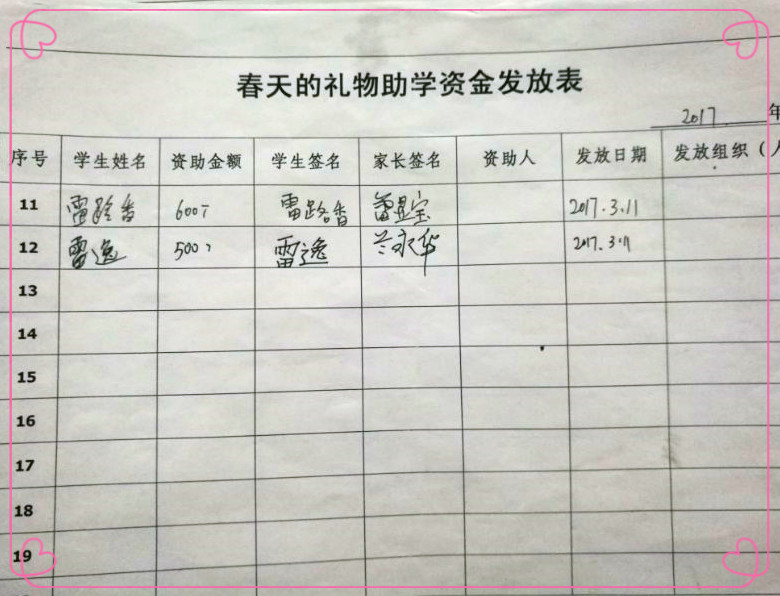 春天的礼物助学资金发放表
2017 年
序号 学生姓名 资助金额 学生签名 家长签名 资助人 发放日期 发放组织（人
11 雷路香 600 雷路香 雷 宝 2017.3.11
12 雷逸 500 雷逸 兰永华 2017.3.11
13
14
15
16
17
18
19